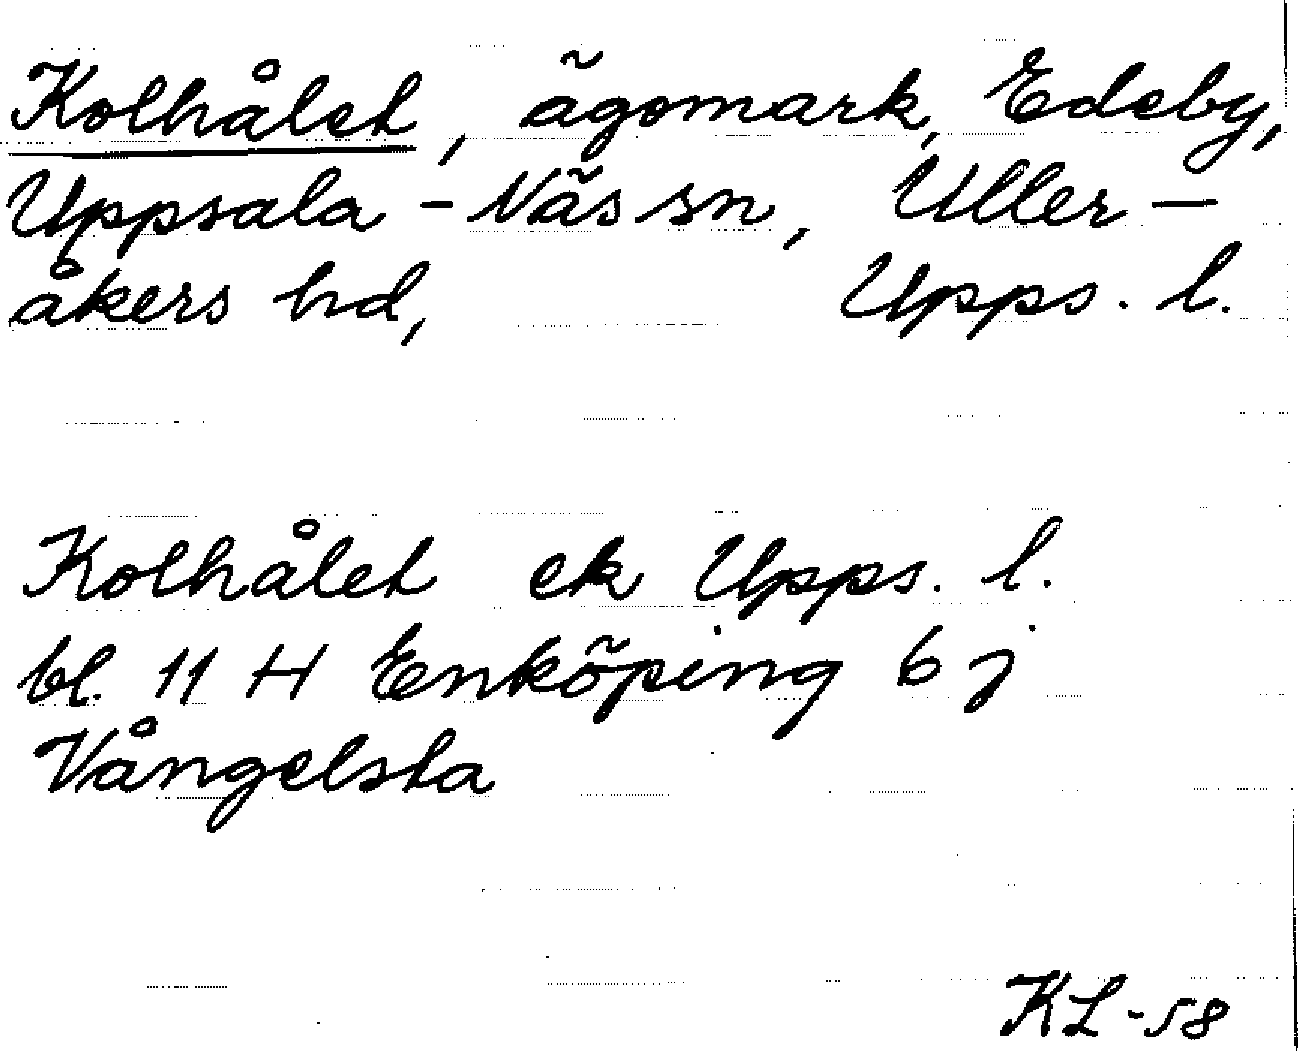 Kolhålet, ägomark, Edeby,
Uppsala - Näs sn, Uller-
åkers hd, Upps. l.
Kolhålet ek Upps. l.
bl. 11 H Enköping 6 j
Vångelsta
KL-58